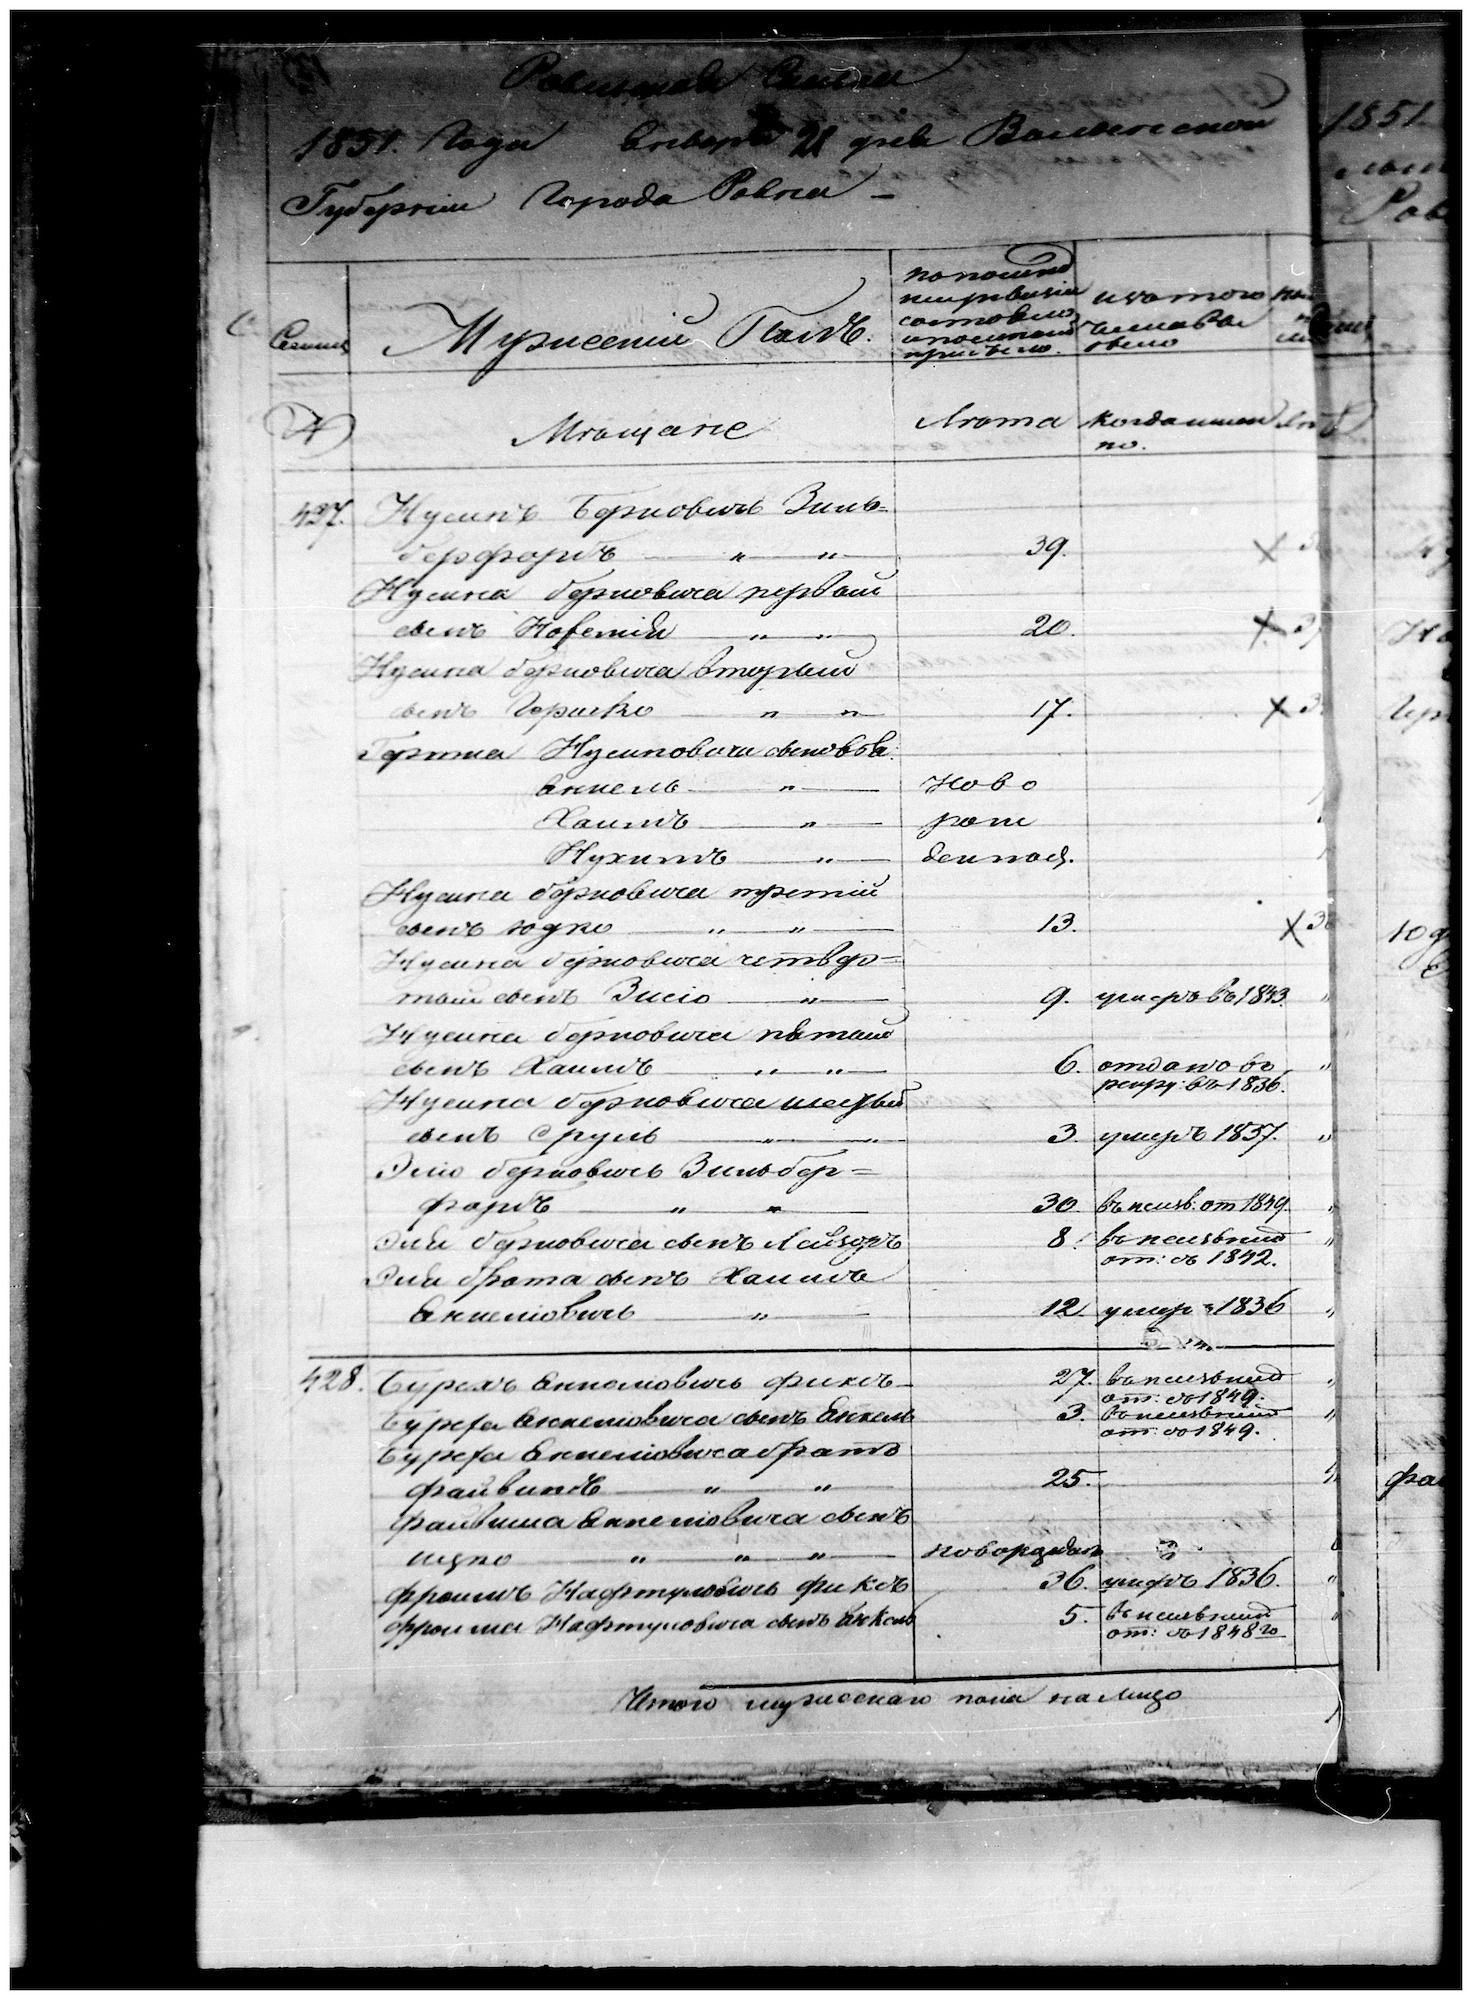 Ревизская Сказка
1851. Года Января 21 дня Волынской
Губерніи Города Ровна —
Семьи
Мужескій Полъ.
По последней
ревизіи
состояло
и после оной
прибыло.
Изъ того
числа вы
было
Мещане
Лета
Когда имен
но.
427. Нусинъ Берковичъ Зиль-
берфарбъ — " — " — 39.
Нусина Берковича первый
сынъ — " — " 20.
Нусина Берковича вторый
сынъ Гершко — " — " — 17.
Гершка Нусиновича сыновья:
Янкель — " — Ново
Хаимъ — " — рож
Нухимъ — " — денной.
Нусина Берковича третій
сынъ Юдко — " — " — 13.
Нусина Берковича четвер-
тый сынъ Зисіо — " — 9. умеръ въ 1843.
Нусина Берковича пятый
сынъ Хаимъ — " — " — 6. отдано въ
рекру: въ 1836.
Нусина Берковича шестый
сынъ Сруль — " — " — 3. умеръ 1837.
Эліо Берковичъ Зильбер-
фарбъ — " — " — 30. въ неизв: от 1849.
Эліи Берковича сынъ Лейзоръ 8. въ неизвѣстной
от: съ 1842.
Эліи брата сынъ Хаимъ
Янкеліовичъ — " — 12. умер 1836
428. Бурехъ Янкеліовичъ Фиксъ — 27. въ неизвѣстной
от: съ 1849.
Буреха Янкеліовича сынъ Янкель 3. въ неизвѣстной
от: съ 1849.
Буреха Янкеліовича братъ
Файвишъ — " — " — 25.
Файвиша Янкеліовича сынъ
Ицко — " — " — " — новорожден
Фроимъ Нафтуловичъ Фиксъ 36. умеръ 1836.
Фроима Нафтуловича сынъ Янкель 5. въ неизвѣстной
от: съ 1848 го
Итого мужескаго пола на лицо
1851